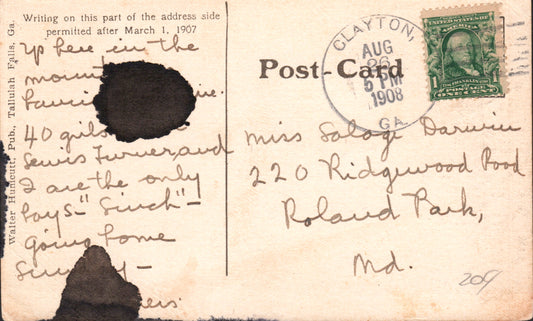 Writing on this part of the address side
permitted after March 1, 1907
Walter Hunnicutt, Pub., Tallulah Falls, Ga.
Post-Card
CLAYTON,
AUG
26
5 PM
1908
GA.
UNITED STATES OF
AMERICA
1
1
POSTAGE
ONE CENT
up here in the
40 girls
Lewis Turner and
I are the only
boys - "Sinch" -
going home
Miss Salage Darwin
220 Ridgewood Road
Roland Park,
Md.
209